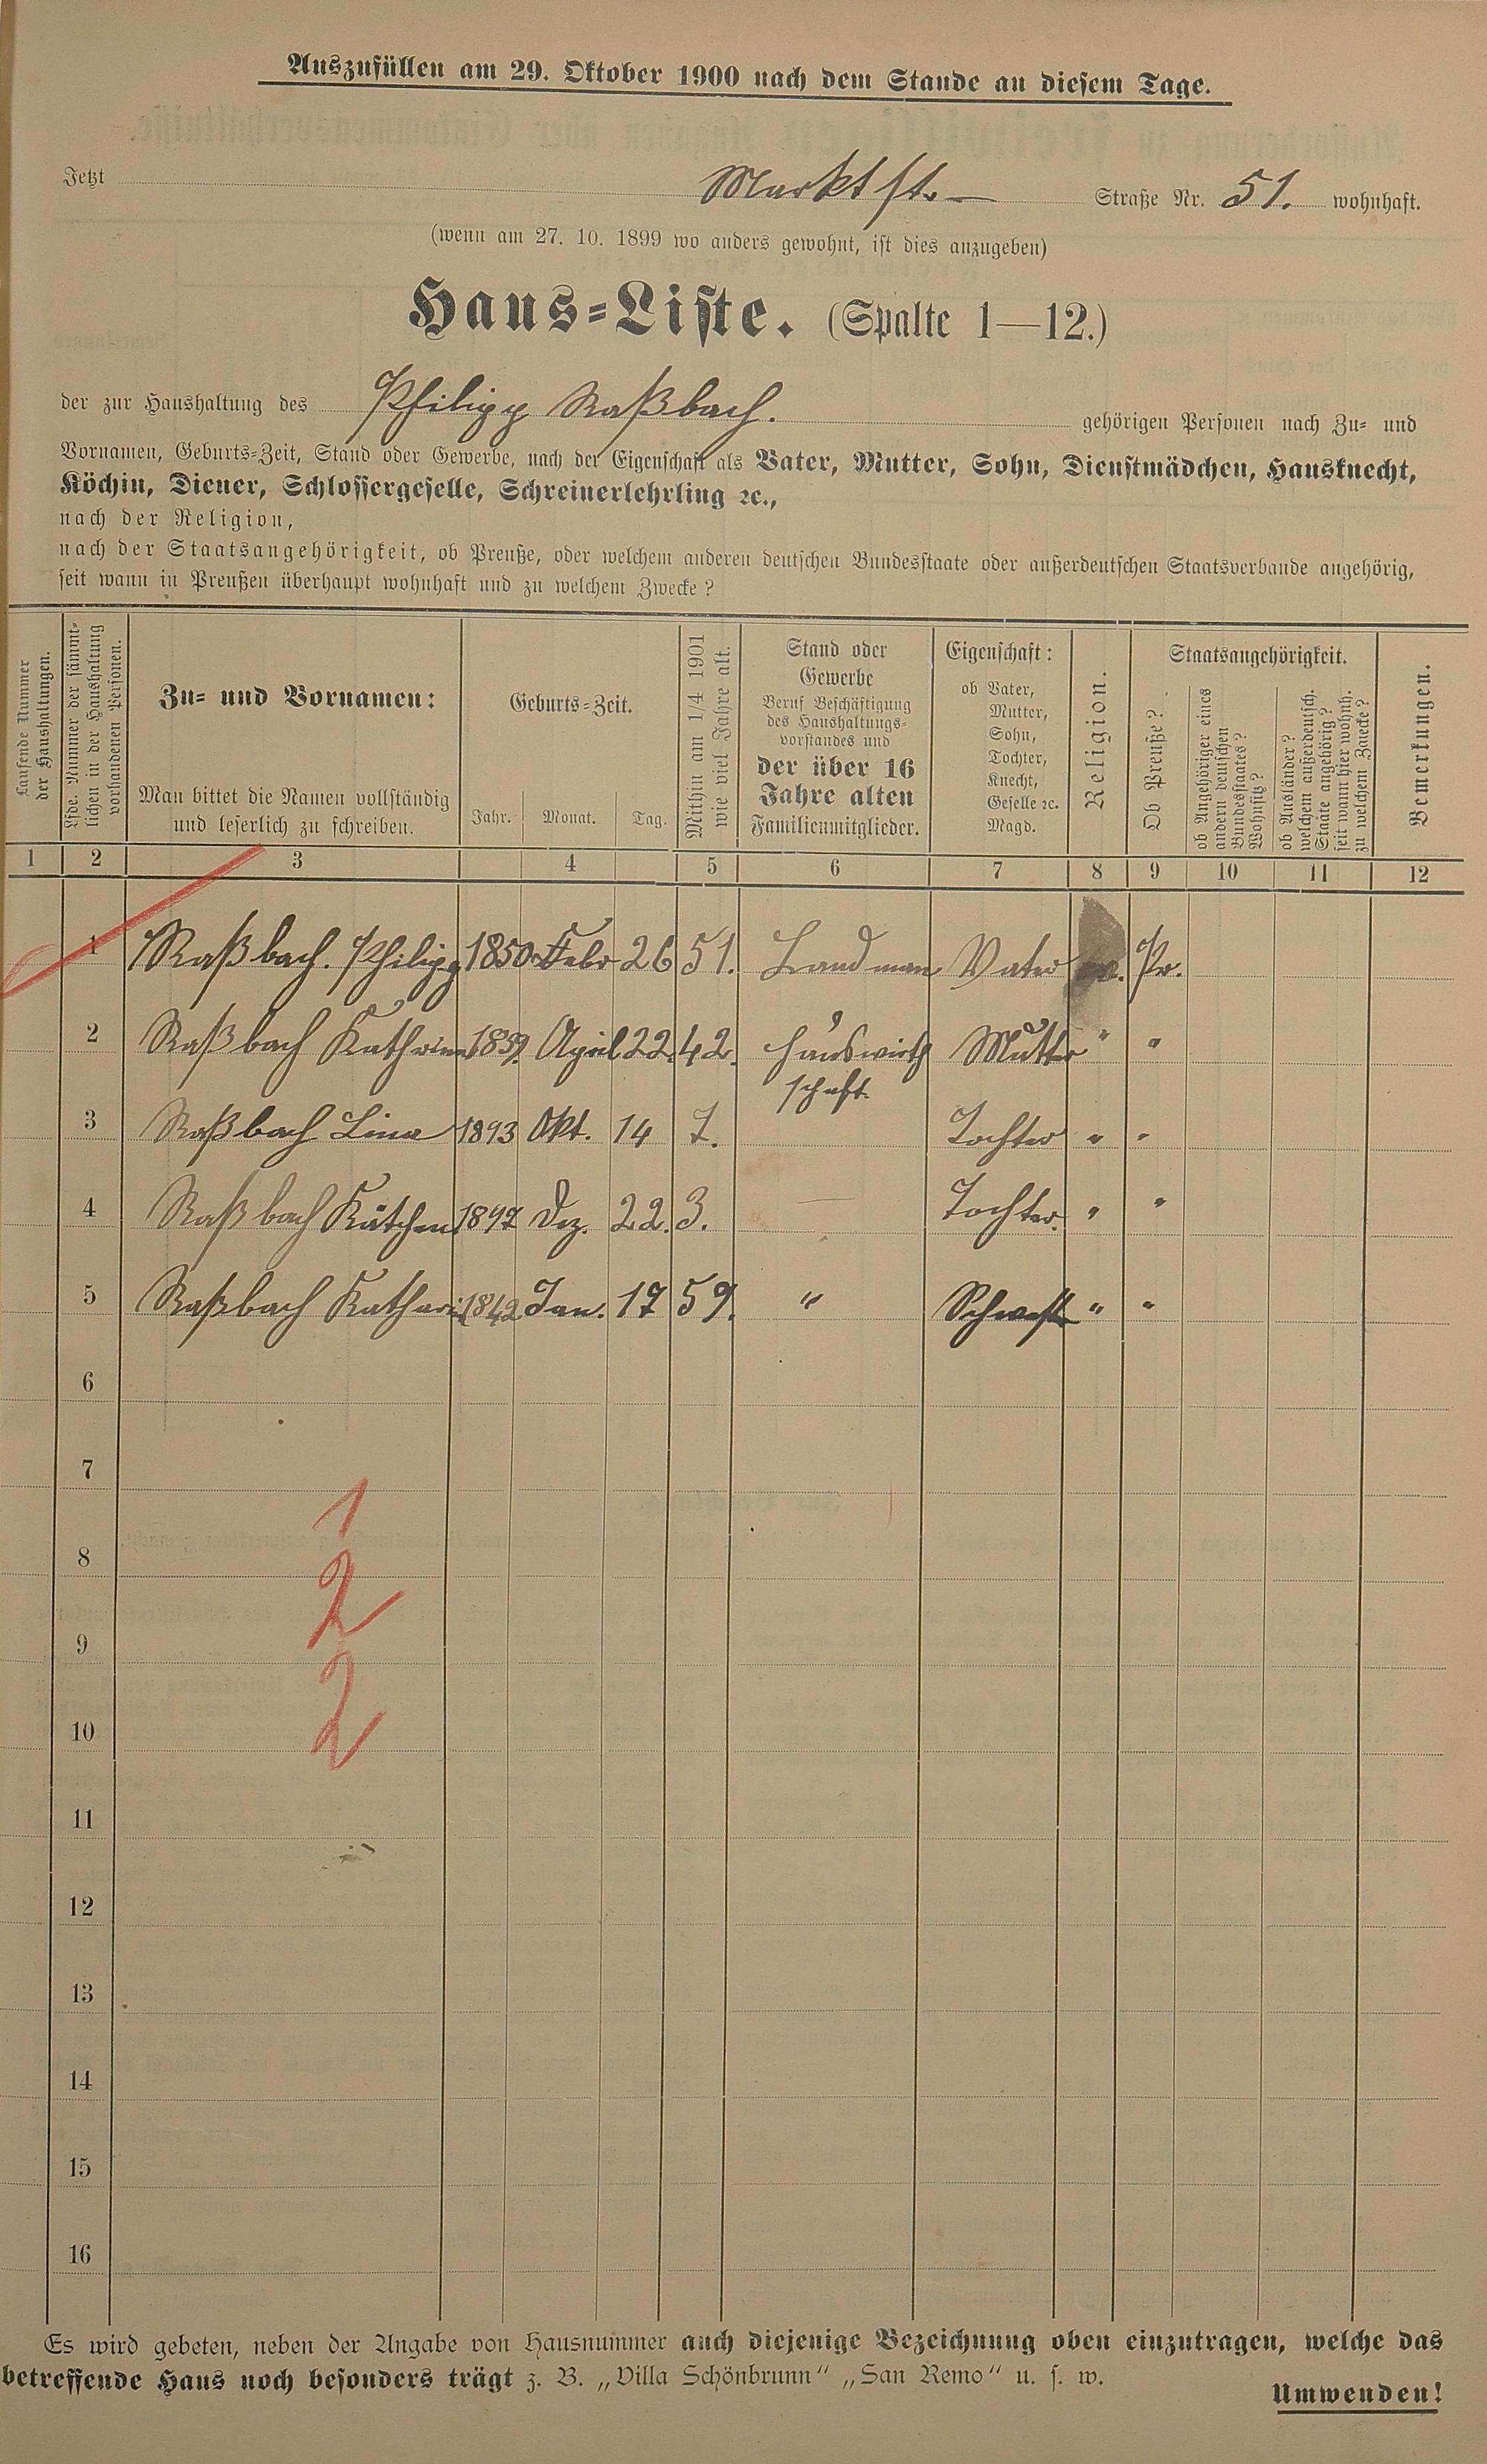 Auszufüllen am 29. Oktober 1900 nach dem Stande an diesem Tage.
Jetzt Marktstr. Straße Nr. 51. wohnhaft.
(wenn am 27. 10. 1899 wo anders gewohnt, ist dies anzugeben)
Haus=Liste. (Spalte 1—12.)
der zur Haushaltung des Philipp Raßbach. gehörigen Personen nach Zu= und
Vornamen, Geburts=Zeit, Stand oder Gewerbe, nach der Eigenschaft als Vater, Mutter, Sohn, Dienstmädchen, Hausknecht,
Köchin, Diener, Schlossergeselle, Schreinerlehrling ꝛc.,
nach der Religion,
nach der Staatsangehörigkeit, ob Preuße, oder welchem anderen deutschen Bundesstaate oder außerdeutschen Staatsverbande angehörig,
seit wann in Preußen überhaupt wohnhaft und zu welchem Zwecke?
Laufende Nummer
der Haushaltungen.
Lfde. Nummer der sämmt=
lichen in der Haushaltung
vorhandenen Personen.
Zu= und Vornamen:
Man bittet die Namen vollständig
und leserlich zu schreiben.
Geburts=Zeit.
Jahr. Monat. Tag.
Mithin am 1/4 1901
wie viel Jahre alt.
Stand oder
Gewerbe
Beruf Beschäftigung
des Haushaltungs=
vorstandes und
der über 16
Jahre alten
Familienmitglieder.
Eigenschaft:
ob Vater,
Mutter,
Sohn,
Tochter,
Knecht,
Geselle ꝛc.
Magd.
Religion.
Staatsangehörigkeit.
Ob Preuße?
ob Angehöriger eines
andern deutschen
Bundesstaates?
Wohnsitz?
ob Ausländer?
welchem außerdeutsch.
Staate angehörig?
seit wann hier wohnh.
zu welchem Zwecke?
Bemerkungen.
1 2 3 4 5 6 7 8 9 10 11 12
1 Raßbach. Philipp 1850 Febr 26 51. Landman Vater Pr.
2 Raßbach 1859. April 22. 42. Hauswirth Mutter " "
schaft.
3 Raßbach Lina 1893 Okt. 14 7. Tochter " "
4 Raßbach Kätchen 1897 Dez. 22. 3. — Tochter. " "
5 Raßbach Kathari 1842 Jan. 17 59. " Schwest " "
6
7
1
8
2
9
2
10
11
12
13
14
15
16
Es wird gebeten, neben der Angabe von Hausnummer auch diejenige Bezeichnung oben einzutragen, welche das
betreffende Haus noch besonders trägt z. B. „Villa Schönbrunn" „San Remo" u. s. w.
Umwenden!